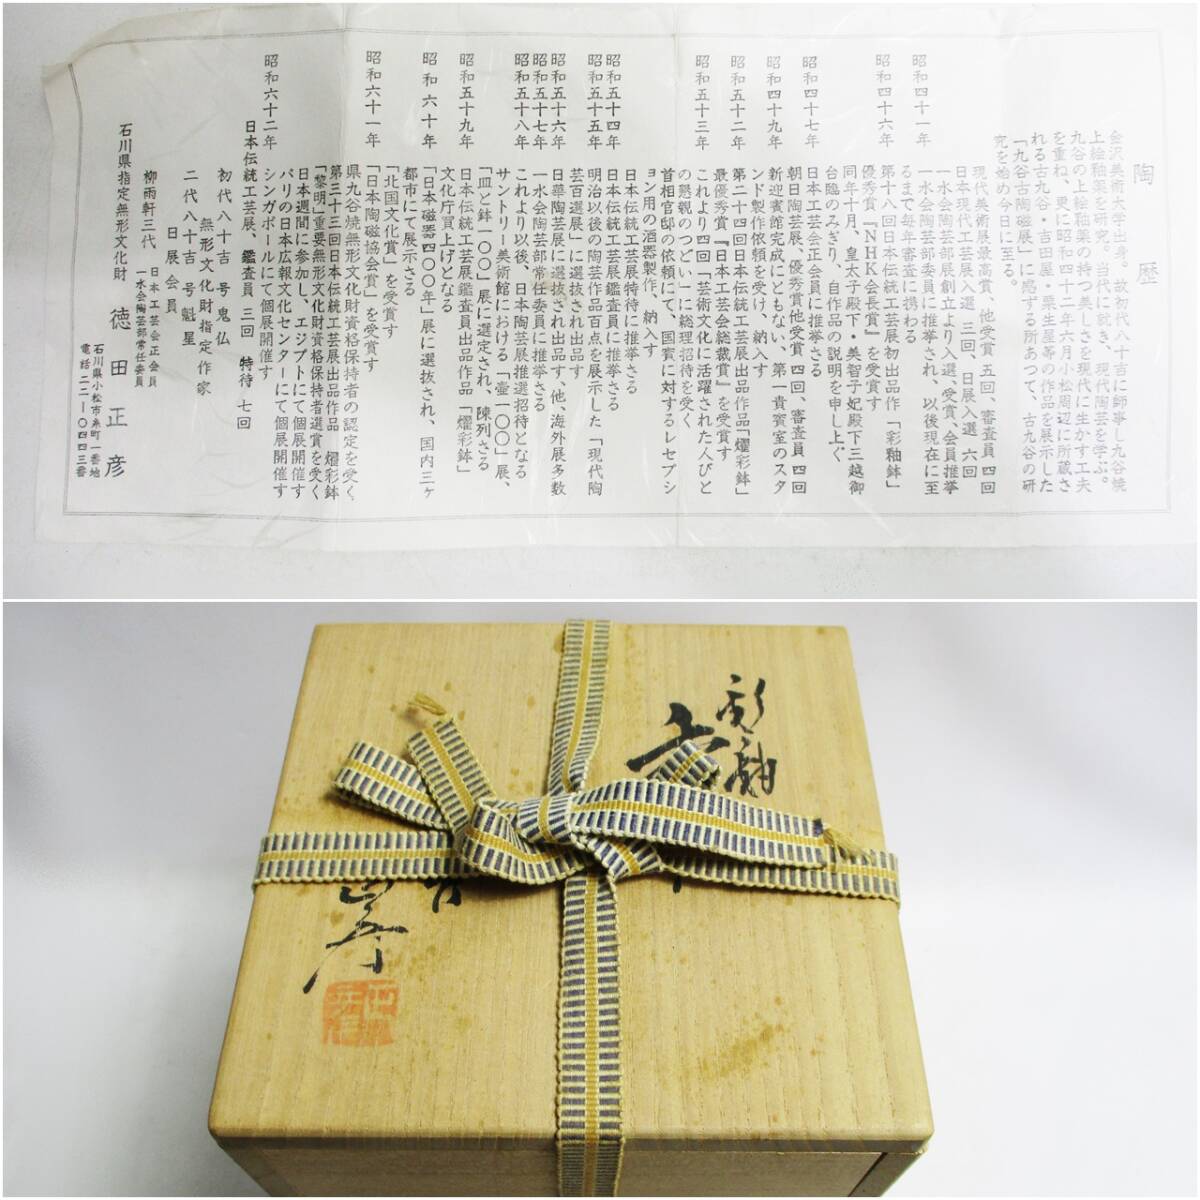 陶歴
金沢美術大学出身。故初代八十吉に師事し九谷焼
上絵釉薬を研究。当代に就き、現代陶芸を学ぶ。
九谷の上絵釉薬の持つ美しさを現代に生かす工夫
を重ね、更に昭和四十二年六月小松周辺に所蔵さ
れる古九谷・吉田屋・粟生屋等の作品を展示した
「九谷古陶磁展」に感ずる所あって、古九谷の研
究を始め今日に至る。
現代美術展最高賞、他受賞 五回、審査員 四回
日本現代工芸展入選 三回、日展入選 六回
昭和四十一年 一水会陶芸部展創立より入選、受賞、会員推挙
一水会陶芸部委員に推挙され、以後現在に至
るまで毎年審査に携わる
昭和四十六年 第十八回日本伝統工芸展初出品作「彩釉鉢」
優秀賞『NHK会長賞』を受賞す
同年十月、皇太子殿下・美智子妃殿下三越御
台臨のみぎり、自作品の説明を申し上ぐ
昭和四十七年 日本工芸会正会員に推挙さる
朝日陶芸展、優秀賞他受賞 四回、審査員 四回
昭和四十九年 新迎賓館完成にともない、第一貴賓室のスタ
ンド製作依頼を受け、納入す
昭和五十二年 第二十四回日本伝統工芸展出品作「燿彩鉢」
最優秀賞『日本工芸会総裁賞』を受賞す
昭和五十三年 これより四回「芸術文化に活躍された人びと
の懇親のつどい」に総理招待を受く
首相官邸の依頼にて、国賓に対するレセプシ
ョン用の酒器製作、納入す
昭和五十四年 日本伝統工芸展特待に推挙さる
日本伝統工芸展鑑査員に推挙さる
昭和五十五年 明治以後の陶芸作品百点を展示した「現代陶
芸百選展」に選抜され出品す
昭和五十六年 日華陶芸展に選抜され出品す、他、海外展多数
昭和五十七年 一水会陶芸部常任委員に推挙さる
昭和五十八年 これより以後、日本陶芸展推選招待となる
サントリー美術館における「壷一〇〇」展、
「皿と鉢一〇〇」展に選定され、陳列さる
昭和五十九年 日本伝統工芸展鑑査員出品作品「燿彩鉢」
文化庁買上げとなる
昭和六十年 「日本磁器四〇〇年」展に選抜され、国内三ヶ
都市にて展示さる
「北国文化賞」を受賞す
昭和六十一年 「日本陶磁協会賞」を受賞す
県九谷焼無形文化財資格保持者の認定を受く
第三十三回日本伝統工芸展出品作品 燿彩鉢
「黎明」重要無形文化財資格保持者選賞を受く
日本週間に参加し、エジプトにて個展開催す
パリの日本広報文化センターにて個展開催す
昭和六十二年 シンガポールにて個展開催す
日本伝統工芸展、鑑査員 三回 特待 七回
初代八十吉 号 鬼仏
無形文化財指定作家
二代八十吉 号 魁星
日展会員
柳雨軒三代 日本工芸会正会員
一水会陶芸部常任委員
石川県指定無形文化財 徳田正彦
石川県小松市糸町一番地
電話二二一〇四四三番
彩釉
正彦